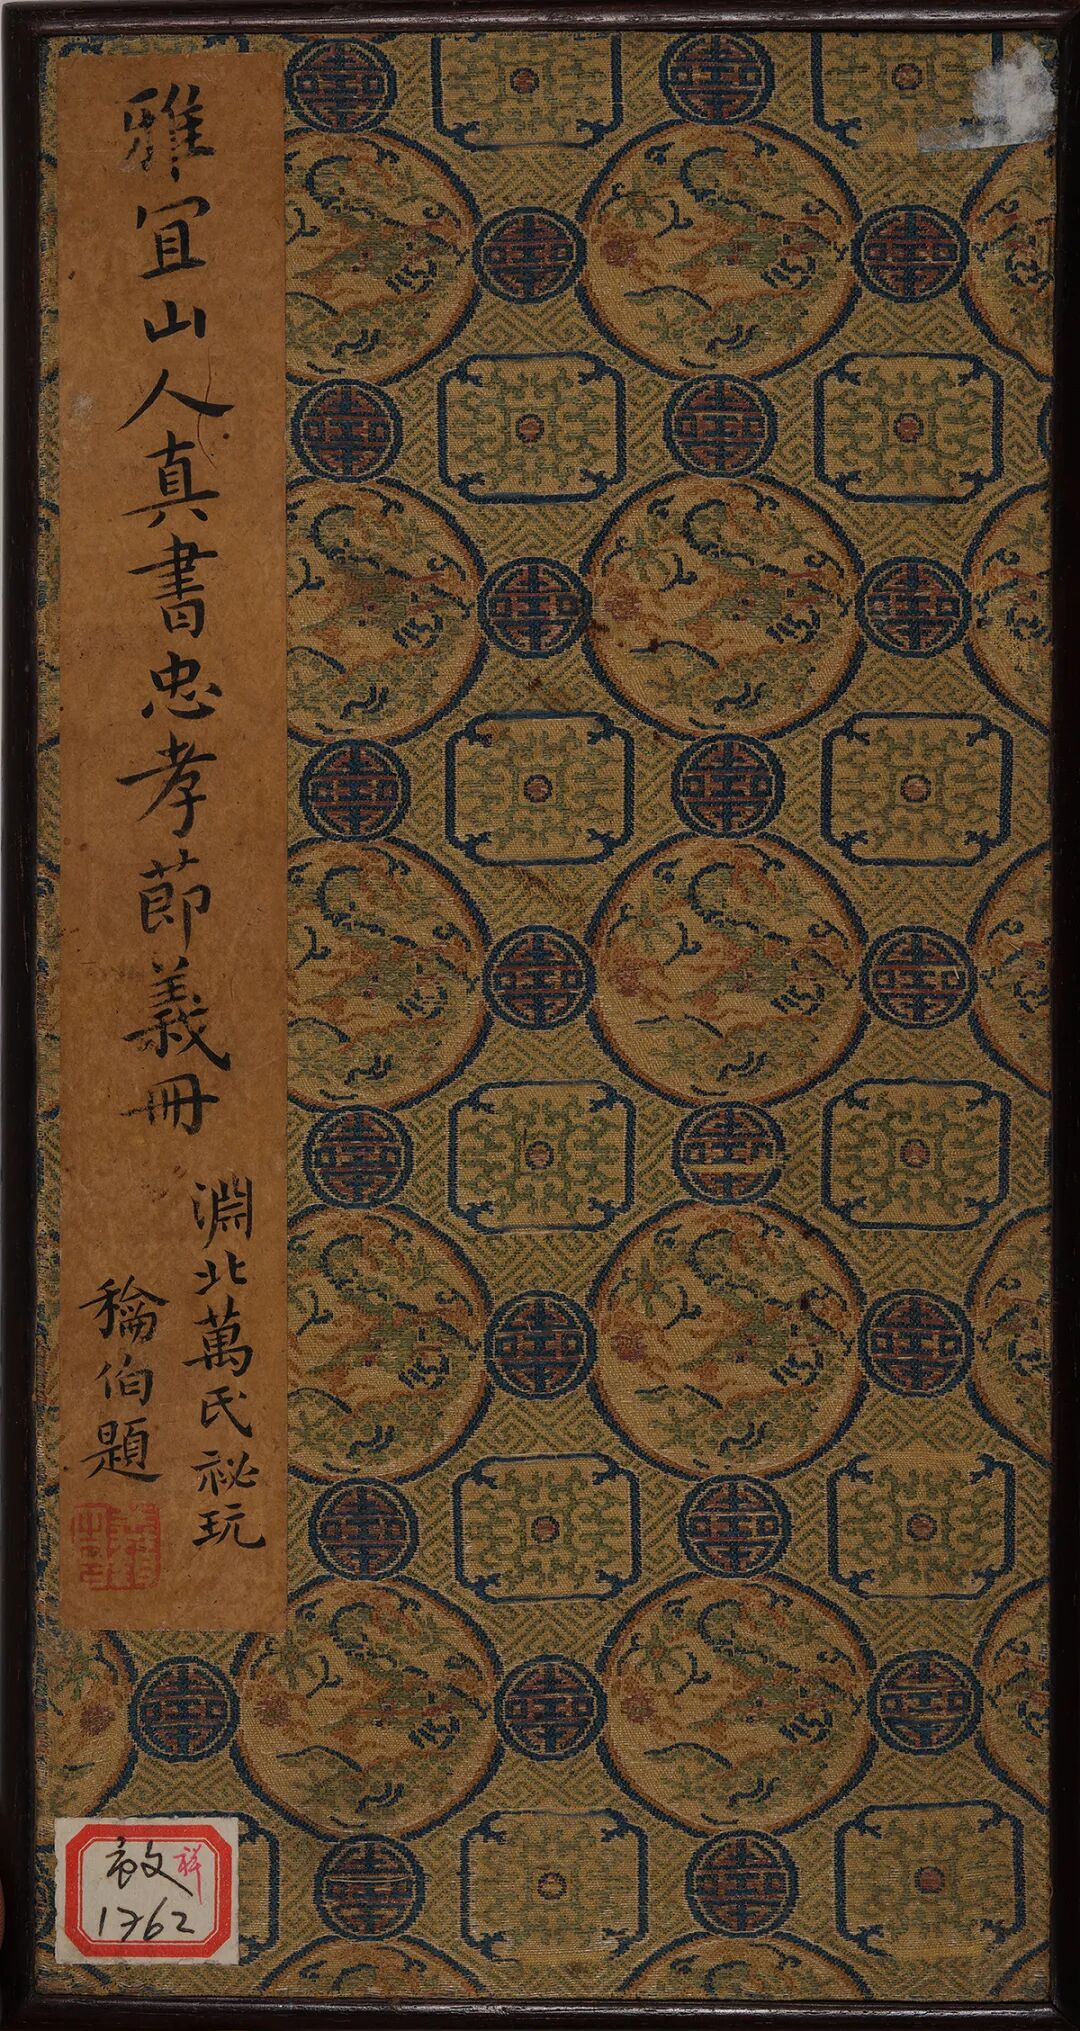 雅宜山人真書忠孝節義冊
淵北萬民祕玩
穐伯題
祥
1762